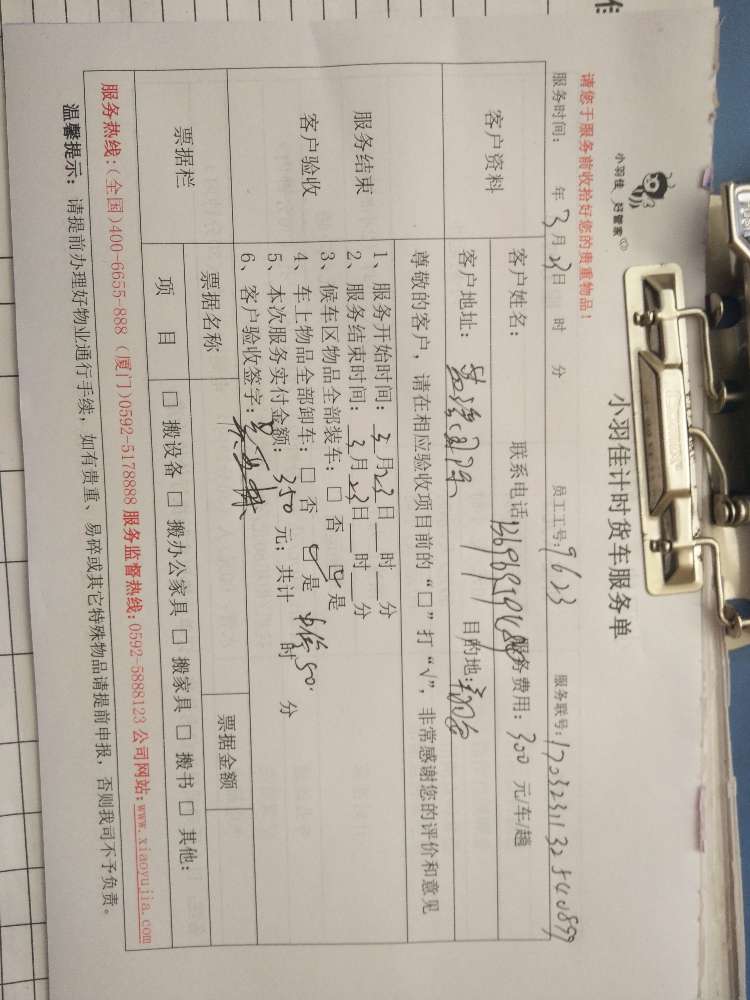 小羽佳 好管家
小羽佳计时货车服务单
请您于服务前收拾好您的贵重物品！
服务时间： 年3月23日 时 分 员工工号：9623 服务联号：
客户资料
客户姓名： 联系电话 服务费用：300 元/车/趟
客户地址： 目的地：
尊敬的客户，请在相应验收项目前的“□”打“√”，非常感谢您的评价和意见
服务结束
客户验收
1、服务开始时间：3月23日__时__分
2、服务结束时间：3月23日__时__分
3、候车区物品全部装车：□ 否 ☑ 是
4、车上物品全部卸车：□ 否 ☑ 是
5、本次服务实付金额：350 元；共计 时 分
6、客户验收签字：
票据栏
票据名称 票据金额
项 目 □ 搬设备 □ 搬办公家具 □ 搬家具 □ 搬书 □ 其他：
服务热线：(全国)400-6655-888 (厦门)0592-5178888 服务监督热线：0592-5888123 公司网站：www.xiaoyujia.com
温馨提示：请提前办理好物业通行手续，如有贵重、易碎或其它特殊物品请提前申报，否则我司不予负责。